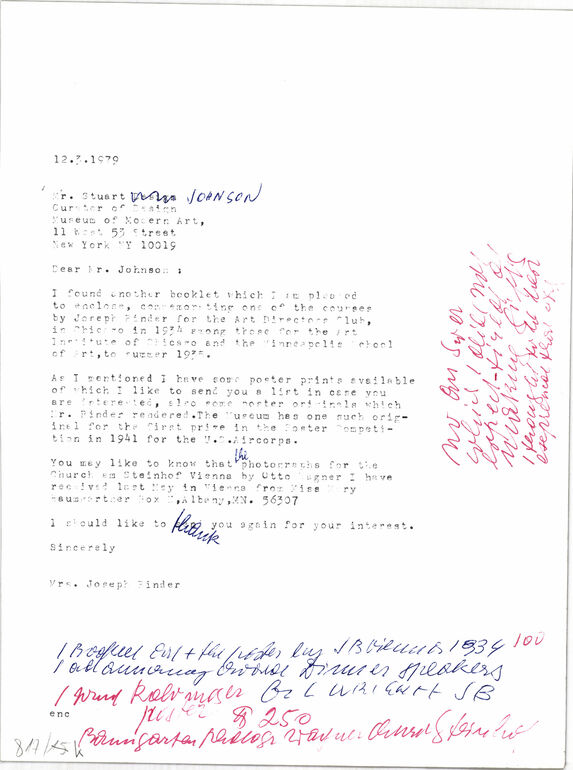 12.3.1979
Mr. Stuart JOHNSON
Curator of Design
Museum of Modern Art,
11 West 53 Street
New York NY 10019
Dear Mr. Johnson ;
I found another booklet which I am pleased
to enclose, commemorating one of the courses
by Joseph Binder for the Art Directors Club,
in Chicago in 1934 among those for the Art
Institute of Chicago and the Minneapolis School
of Art, to summer 1935.
As I mentioned I have some poster prints available
of which I like to send you a list in case you
are interested, also some poster originals which
Mr. Binder rendered.The Museum has one such orig-
inal for the first prize in the Poster Competi-
tion in 1941 for the U.S.Aircorps.
You may like to know that the photographs for the
Church am Steinhof Vienna by Otto Wagner I have
received last May in Vienna from Miss Mary
Baumgartner Box ,Albany,MN. 56307
I should like to thank you again for your interest.
Sincerely
Mrs. Joseph Binder
no answer
which I did not
expect
100
1 ad announcing Dinner speakers
WRIGHT + JB
enc
poster $ 250